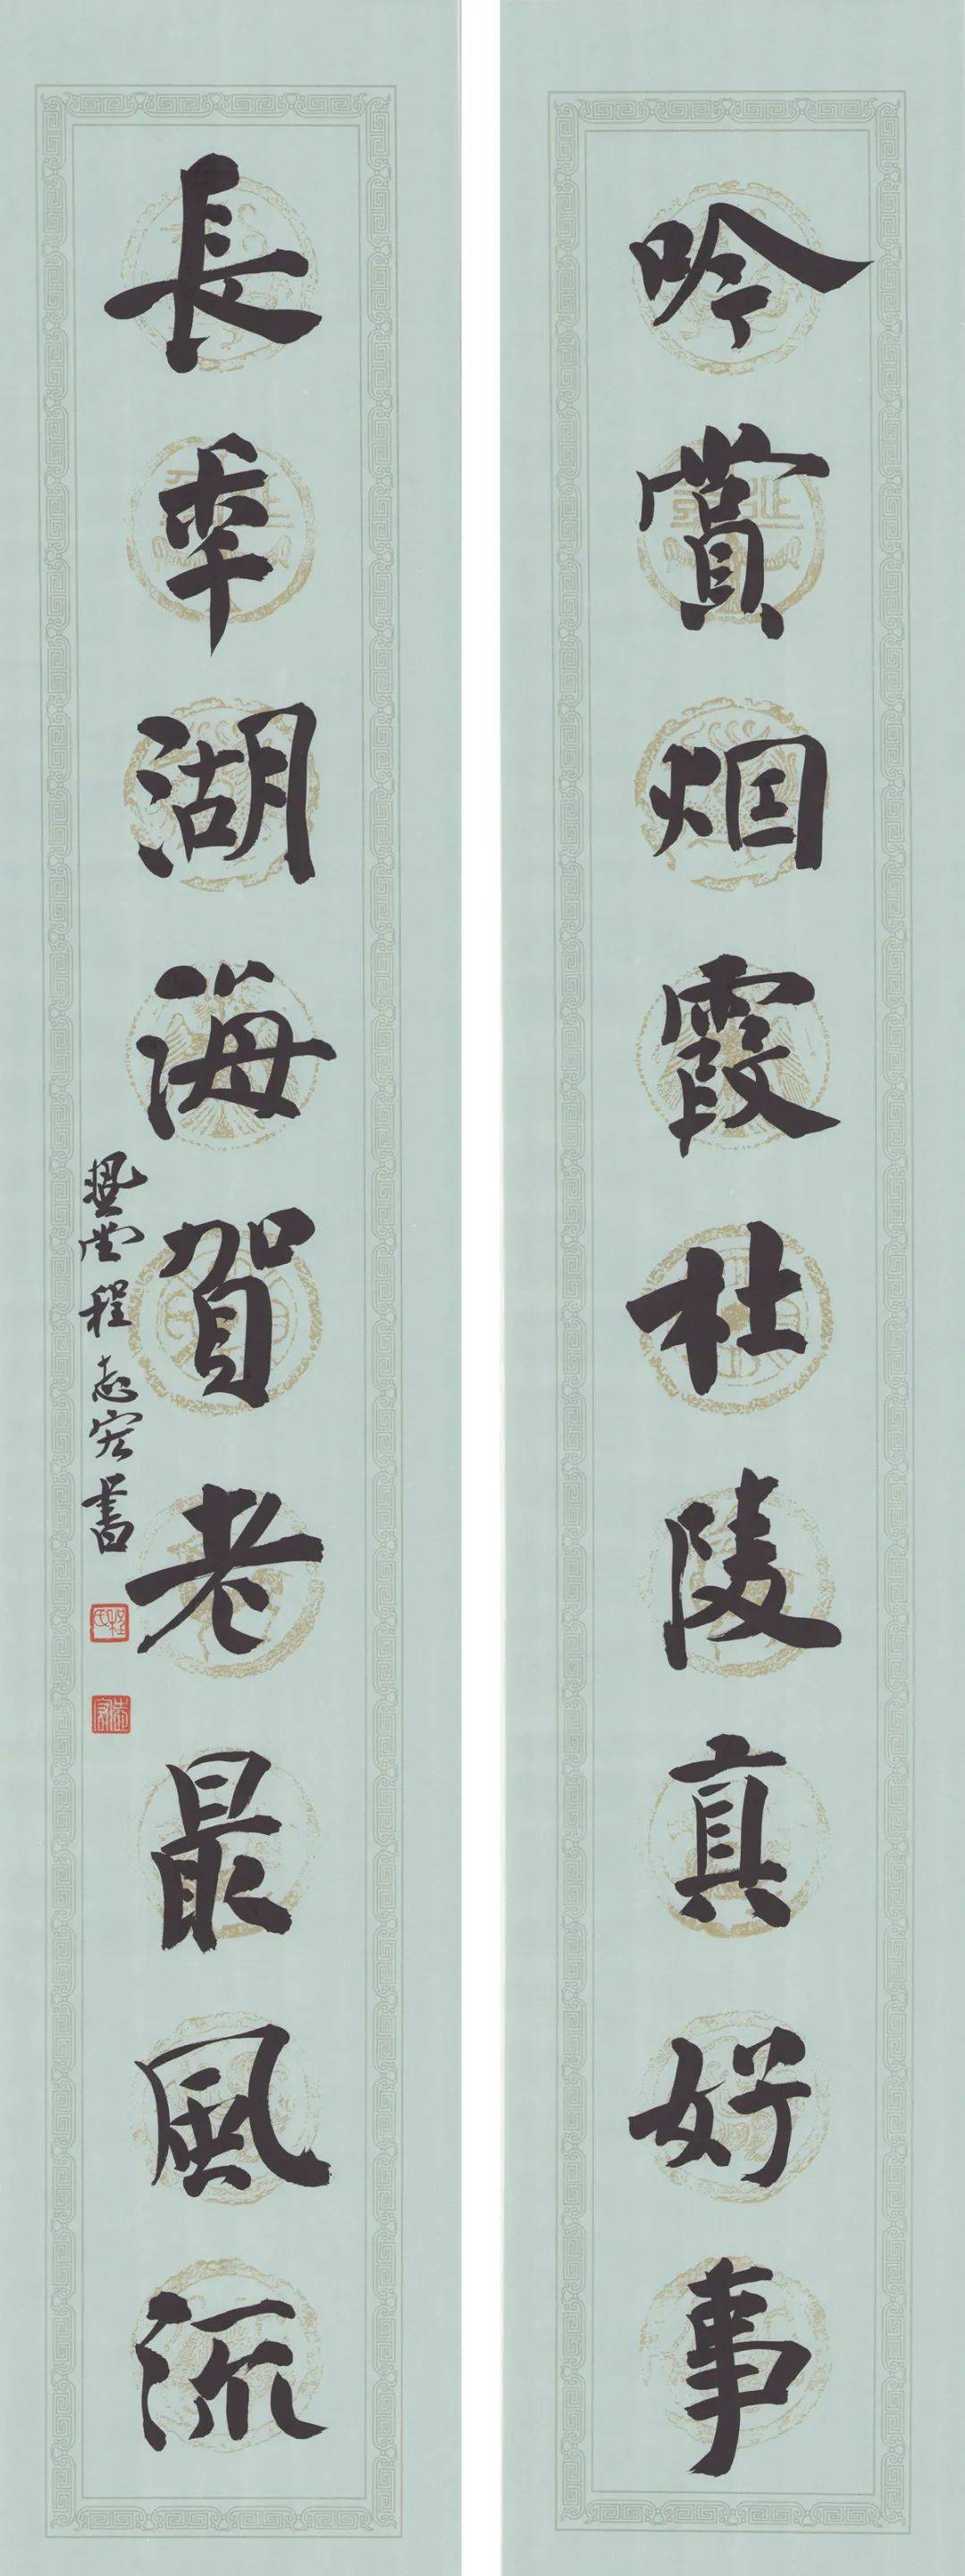 吟賞烟霞杜陵真好事
長年湖海賀老最風流
堂程志宏書
程氏